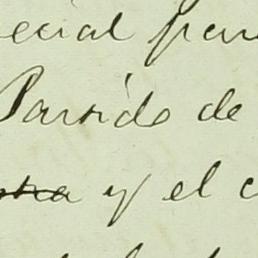 ecial para
Partido de
y el c